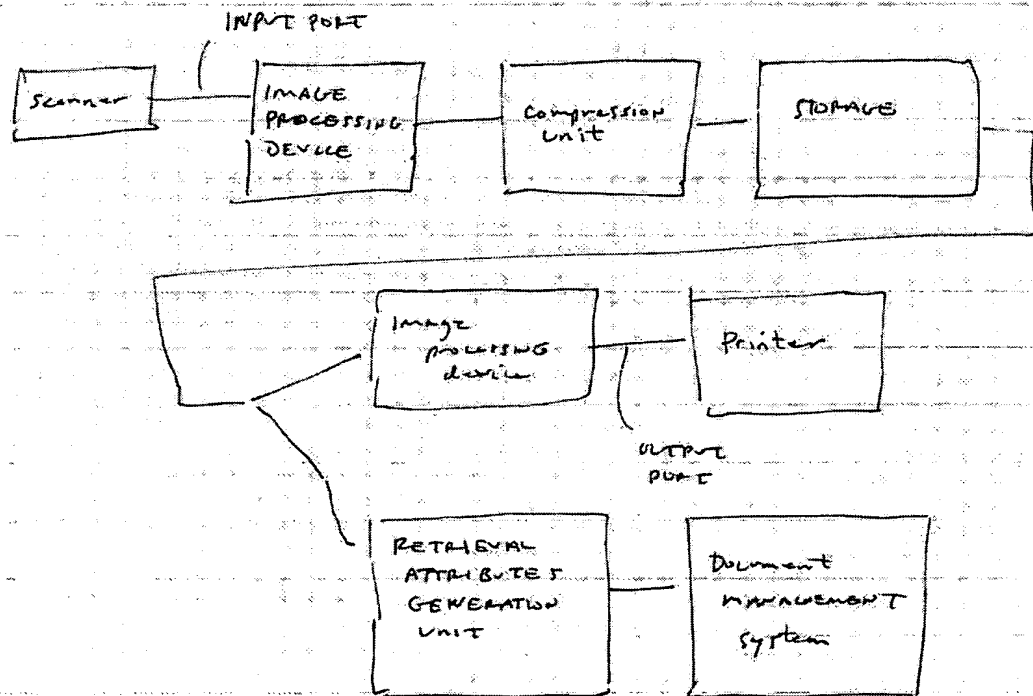 INPUT PORT
Scanner
IMAGE
PROCESSING
DEVICE
Compression
Unit
STORAGE
Image
processing
device
Printer
OUTPUT
PORT
RETRIEVAL
ATTRIBUTES
GENERATION
UNIT
Document
MANAGEMENT
System